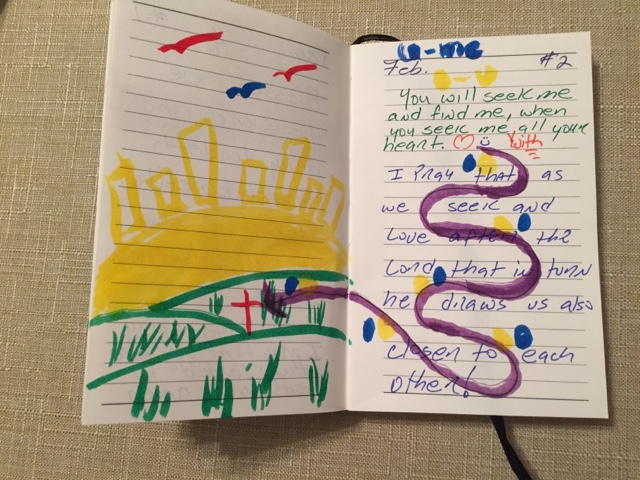 u-me
Feb. #2
U-U
You will seek me
and find me, when
you seek me all your
heart. with
I Pray that as
we seek and
Love after the
Lord that in turn
he draws us also
closer to each
other!